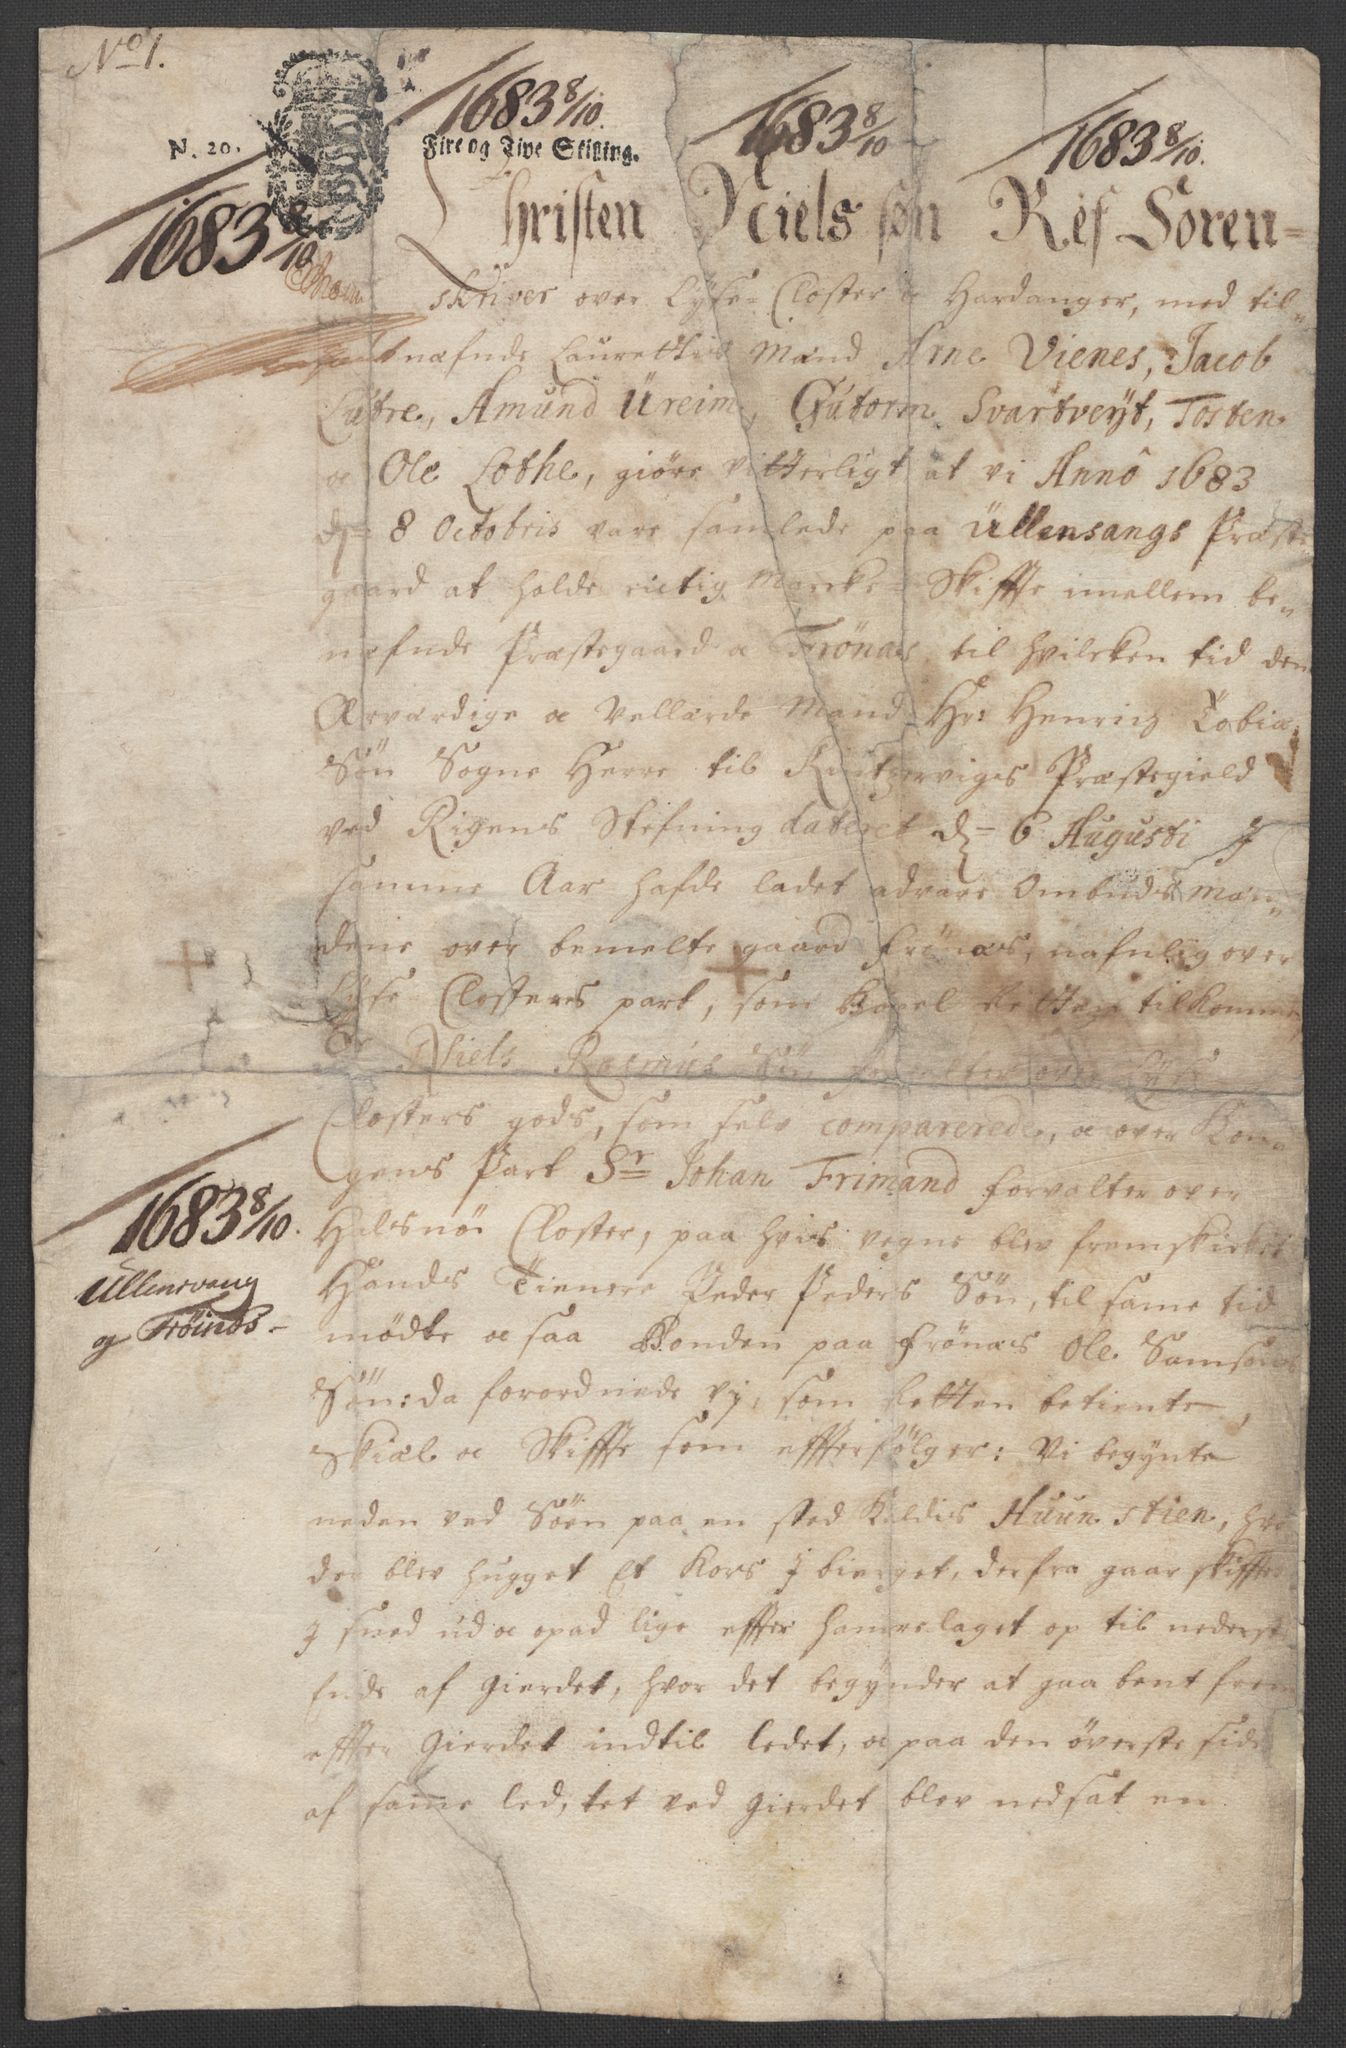 No 1.
1683 8/10.
1683 8/10
1683 8/10.
N. 20.
Fire og Tive Skilling.
1683 8/10
Christen Nielssøn Ref Soren=
skriver over Lyse=Closter oc Hardanger, med til=
næfnde Laurettis Mænd Arne Vienes, Jacob
Lutre, Amund Üreim, Gutorm Svartveyt, Tosten
oc Ole Lothe, giöre vitterligt at vi Anno 1683
d. 8 Octobris vare samlede paa Üllensangs Præste
gaard at holde rictig Marcke=Skiffte imellem be=
næfnde Præstegaard oc Frönæs, til hvilcken tid den
Ærværdige oc Vellærde Mand Hr: Henrich Tobia
Sön Sogne Herre til Kintzerviges Præstegield
ved Rigens Stefning dateret d. 6 Augusti J
samme Aar hafde ladet advare Ombuds Mæn=
dene over bemelte gaard Frönæs, nafnlig over
Lyse Closters part, som Capel tilkomme
Sr Niels Rasmus Sön forvalter over Lyse
Closters gods, som selv comparerede, oc over Kon=
gens Part Sr Johan Frimand forvalter over
Halsnö Closter, paa hvis vegne blev fremskicket
Hands Tienere Peder Peders Sön, til same tid
mödte oc saa Bonden paa Frönæs Ole Samsons
Sön: da forordnede vj, som Retten betiente,
Skiæl oc Skiffte som effterfölger: Vi begynte
neden ved Söen paa en sted Kaldis Huun stien, hvor
der blev hugget Et Kors J bierget, derfra gaar skifftet
J sned ud oc opad lige effter hammelaget op til nederste
Ende af Gierdet, hvor det begynder at gaa bent frem
effter Gierdet indtil Ledet, oc paa den överste side
af same led, tet ved Gierdet blev nedsat en
1683 8/10.
Ullensvang
og Frøinæs –